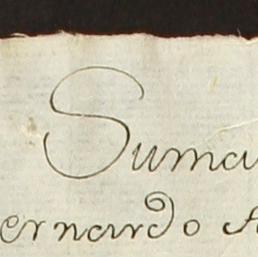 Suma
ernardo A